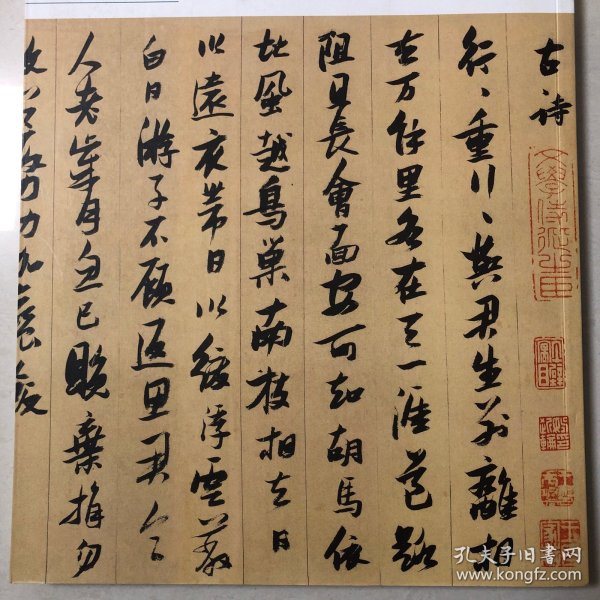 古詩
行、重行、與君生別離相
去万餘里各在天一涯道路
阻且長會面安可知胡馬依
北風越鳥巢南枝相去日
以遠衣帶日以緩浮雲蔽
白日游子不顧返思君令
人老歲月忽已晚棄捐勿
努力加餐
孔夫子旧书网
www.kongfz.com